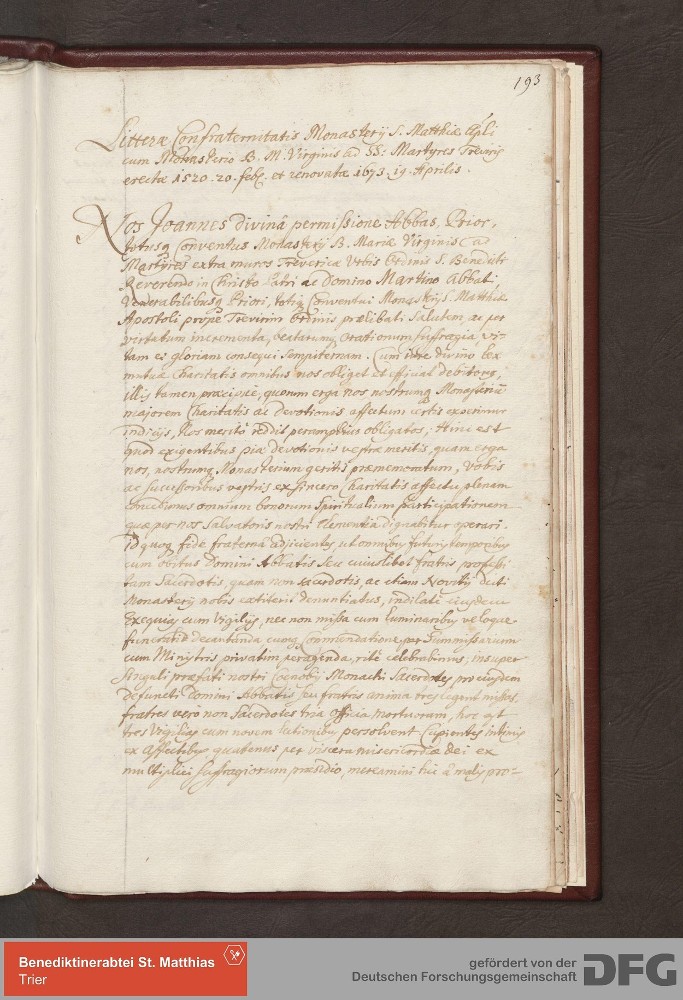 193
Litteræ Confraternitatis Monasterij S. Matthiæ Apli
cum Monasterio B. M. Virginis ad SS: Martyres Treviris
erectæ 1520. 20. feb. et renovatæ 1673. 19. Aprilis.
Nos Joannes divinâ permissione Abbas, Prior,
totusq Conventus Monasterij B. Mariæ Virginis ad
Martyres extra muros Trevericæ Urbis Ordinis S. Benedicti
Reverendo in Christo Patri ac Domino Martino Abbati,
Venerabilibusq Priori, totiq Conventui Monasterij S. Matthiæ
Apostoli prope Trevirim Ordinis prælibati Salutem, ac per
virtutum incrementa, beatarumq Orationum suffragia vi-
tam et gloriam consequi sempiternam. Cum divino lex
mutuæ Charitatis omnibus nos obliget et efficiat debitores,
illis tamen præcipuè, quorum erga nos nostrumq Monasteriũ
majorem Charitatis ac devotionis affectum certis experimur
indicijs, Nos meritò reddit obligatos; Hinc est
quod exigentibus piæ devotionis vestræ meritis, quam erga
nos, nostrumq Monasterium geritis præmemoratum, vobis
ac successoribus vestris ex sincero Charitatis affectu plenam
concedimus omnium bonorum Spiritualium participationem
quæ per nos Salvatoris nostri Clementia dignabitur operari.
Id quoq fide fraternâ adjicientes, ut omnibus futuris temporibus
cum obitus Domini Abbatis seu cuiuslibet fratris professi
tam Sacerdotis, quam non sacerdotis, ac etiam Novitij dicti
Monasterij nobis extiterit denuntiatus, indilatè eiusdem
Exequias cum Vigilijs, nec non missa cum luminaribus
decantanda cumq Commendatione per Summissarium
cum Ministris privatim peragenda, ritè celebrabimus, insuper
singuli præfati nostri Coenobij Monachi Sacerdotes pro eiusdem
defuncti Domini Abbatis seu fratris anima tres legent missas,
fratres verò non Sacerdotes tria Officia mortuorum, hoc est
tres Vigilias cum novem lectionibus persolvent Cupientes intimis
ex affectibus quatenus per viscera misericordiæ dei ex
multiplici suffragiorum præsidio, mereamini hic â malis pro-
Benediktinerabtei St. Matthias
Trier
gefördert von der
Deutschen Forschungsgemeinschaft
DFG